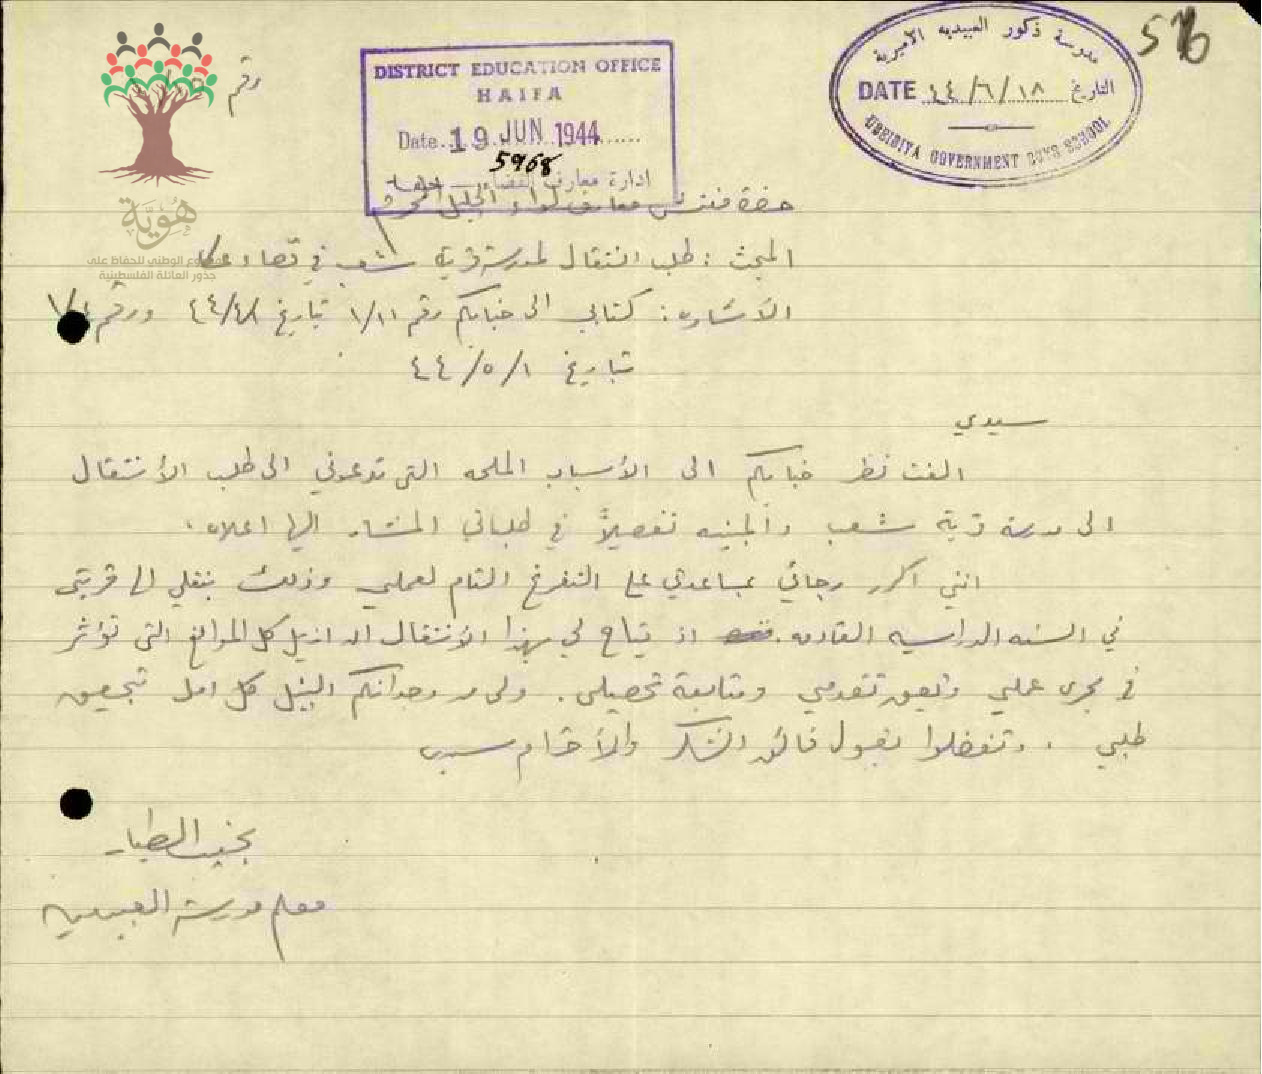 576
مدرسة ذكور العبيديه الأميرية
DATE ٤٤/٦/١٨ التاريخ
UBEIDIYA GOVERNMENT BOYS SCHOOL
DISTRICT EDUCATION OFFICE
HAIFA
Date 19 JUN 1944
5968
ادارة معارف القضاء حيفا
رقم
هُوِيَّة
المشروع الوطني للحفاظ على
جذور العائلة الفلسطينية
حضرة مفتش معارف لواء الجليل المحترم
المبحث : طلب انتقال لمدرسة قرية شعب في قضاء عكا
الأشاره : كتابي الى جنابكم رقم ١/١١ تاريخ ورقم
تاريخ ٤٤/٥/١
سيدي
الفت نظر جنابكم الى الأسباب الملحه التي تدعوني الى طلب الأنتقال
الى مدرسة قرية شعب والمبينه تفصيلاً في طلباتي المشار اليها اعلاه .
انني اكرر رجائي بمساعدتي على التفرغ التام لعملي وذلك بنقلي الى قريتي
في السنه الدراسيه القادمه . اذ يتاح لي بهذا الأنتقال ان ازيل كل الموانع التي تؤثر
في مجرى عملي وتعيق تقدمي ومتابعة تحصيلي . ولي من وجدانكم النبيل كل امل بتحقيق
طلبي . وتفضلوا بقبول فائق الشكر والأحترام سيدي
نجيب الطيار
معلم مدرسة العبيديه